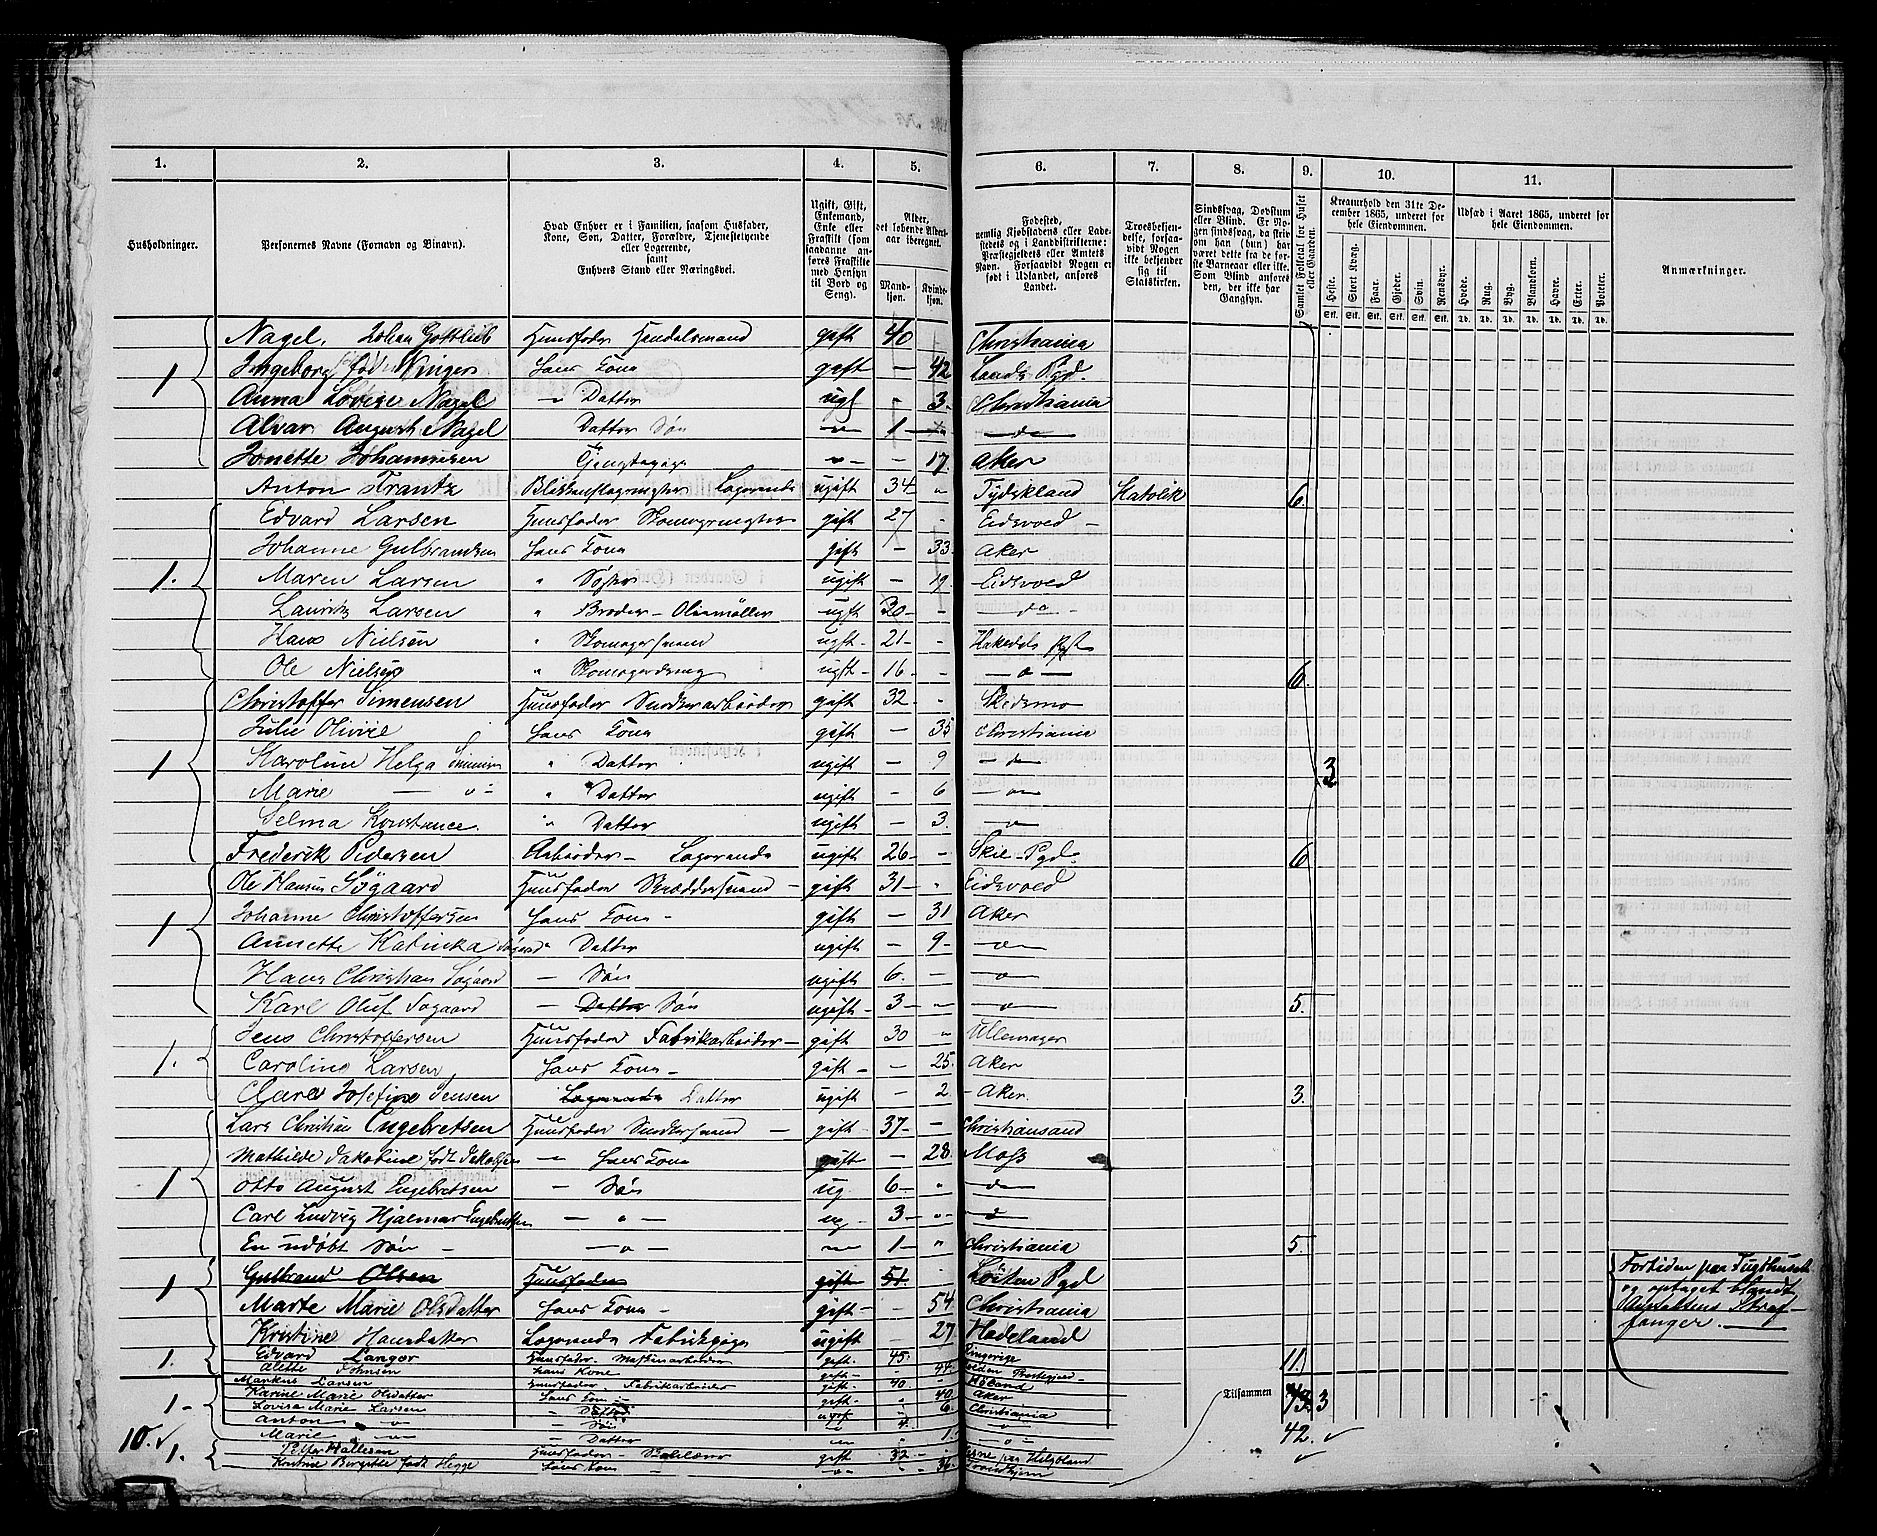 1. 2. 3. 4. 5. 6. 7. 8. 9. 10. 11.
Husholdninger.
Personernes Navne (Fornavn og Binavn).
Hvad Enhver er i Familien, saasom Husfader, Kone, Søn, Datter, Forældre, Tjenestetyende eller Logerende, samt Enhvers Stand eller Næringsvei.
Ugift, Gift, Enkemand, Enke eller Fraskilt (som saadanne anføres Fraskilte med Hensyn til Bord og Seng).
Alder, det løbende Aldersaar iberegnet.
Mandkjøn. Kvindekjøn.
Fødested, nemlig Kjøbstadens eller Ladestedets og i Landdistrikterne: Præstegjeldets eller Amtets Navn. Forsaavidt Nogen er født i Udlandet, anføres Landet.
Troesbekjendelse, forsaavidt Nogen ikke bekjender sig til Statskirken.
Sindssvag, Døvstum eller Blind. Er Nogen sindssvag, da skriv om han (hun) har været dette fra de første Barneaar eller ikke. Som Blind anføres den, der ikke har Gangsyn.
Samlet Folketal for Huset eller Gaarden.
Kreaturhold den 31te December 1865, underet for hele Eiendommen.
Heste. Stort Kvæg. Faar. Gjeder. Svin. Rensdyr.
Udsæd i Aaret 1865, underet for hele Eiendommen.
Hvede. Rug. Byg. Blandkorn. Havre. Erter. Poteter.
Anmærkninger.
Nagel, Johan Gottlieb Huusfader Handelsmand gift 40 Christiania
1 Ingeborg født Winger Hans Kone gift — 42 Lands Pgd.
Anna Lovise Nagel " Datter ugf - 3 Christiania
Alvar August Nagel Datter Søn " 1 — do
Jonette Johannesen Tjenestepige " - 17 Aker
Anton Frantz Logerende ugift 34 " Tydskland Katolik 6.
Edvard Larsen Huusfader Skomagermester gift 27 - Eidsvold
Johanne Gulbrandsen Hans Kone gift - 33 Aker
1. Maren Larsen " Søster ugift - 19 Eidsvold
Lauritz Larsen " Broder - Oliemøller ugft 30 - do
Hans Nielsen " Skomagersvend ugft 21 - Hakedals Pgf
Ole Nielsen " Skomagerdreng ugft 16 - " 6.
Christoffer Simensen Huusfader Snedkerarbeider gift 32 - Skedsmo
Julie Olivie Hans Kone gift - 35 Christiania
1 Karoline Helga Simensen " Datter ugift - 9 do 3
Marie — " — " Datter ugift - 6 "
Selma Konstance " Datter ugift - 3 "
Frederik Pedersen Arbeider - Logerende ugift 26 - Skie - Pgd. 6
Ole Hansen Søgaard Huusfader Skræddersvend gift 31 - Eidsvold
Johanne Christoffersen Hans Kone gift - 31 Aker
1 Annette Katinka Søgaard " Datter ugift - 9 "
Hans Christian Søgaard — Søn ugift 6 - "
Karl Oluf Søgaard — Datter Søn ugift 3 - " 5.
Jens Christoffersen Huusfader Fabrikarbeider gift 30 " Ullensager
1. Caroline Larsen Hans Kone gift - 25 Aker
Clara Josefine Jensen Logerende Datter ugift - 2 Aker 3.
Lars Christian Engebretsen Huusfader Snedkersvend gift 37 - Christiansand
Mathilde Jakobine født Jakobsen — Hans Kone gift - 28 Moss
1 Otto August Engebretsen — Søn ug. 6 " do
Carl Ludvig Hjalmar Engebretsen — " — ug 3 - "
En udøbt Søn — " — " 1 " Christiania 5.
1 Gulbrand Olsen Huusfader gift 51 Löiten Pgd
Marte Marie Olsdatter Hans Kone gift - 54 Christiania
Kristine Hansdatter Logerende Fabrikpige ugift - 27 Hadeland
Fortiden paa Tugthuset og optaget blandt Anstaltens Straffanger.
1. Edvard Langør Huusfader. Maskinarbeider gift 45 Ringerige 11.
Alette Johnsen Hans Kone gift - 44
Markus Larsen Huusfader. Fabrikarbeider gift 40 Høland
1 - Karine Marie Olsdatter Hans Kone gift " 40 Aker
Lovise Marie Larsen — Datter ugift " 6 Christiania
Anton " — Søn " 4 "
Marie " — Datter " - 1 "
10. ✓
1. Petter Hallesen Huusfader gift 32 -
Kristine Birgitte født Hegge Hans Kone " " 36 Trondhjem
Tilsammen 43. 3
42. ✓